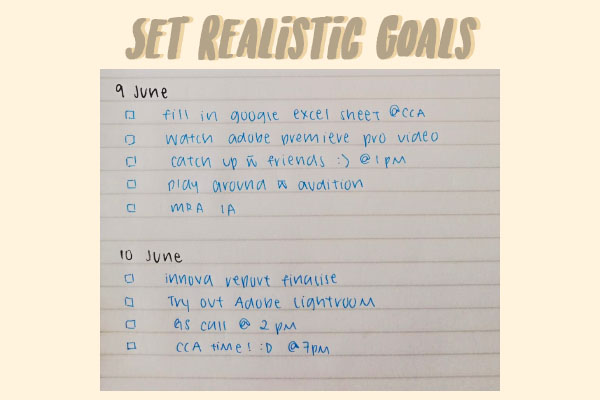 SET REALISTIC GOALS
9 June
fill in google excel sheet @CCA
watch adobe premiere pro video
catch up w̄ friends :) @ 1pm
play around w̄ audition
MRA IA
10 June
innova report finalise
Try out Adobe Lightroom
call @ 2 pm
CCA time! :D @7pm